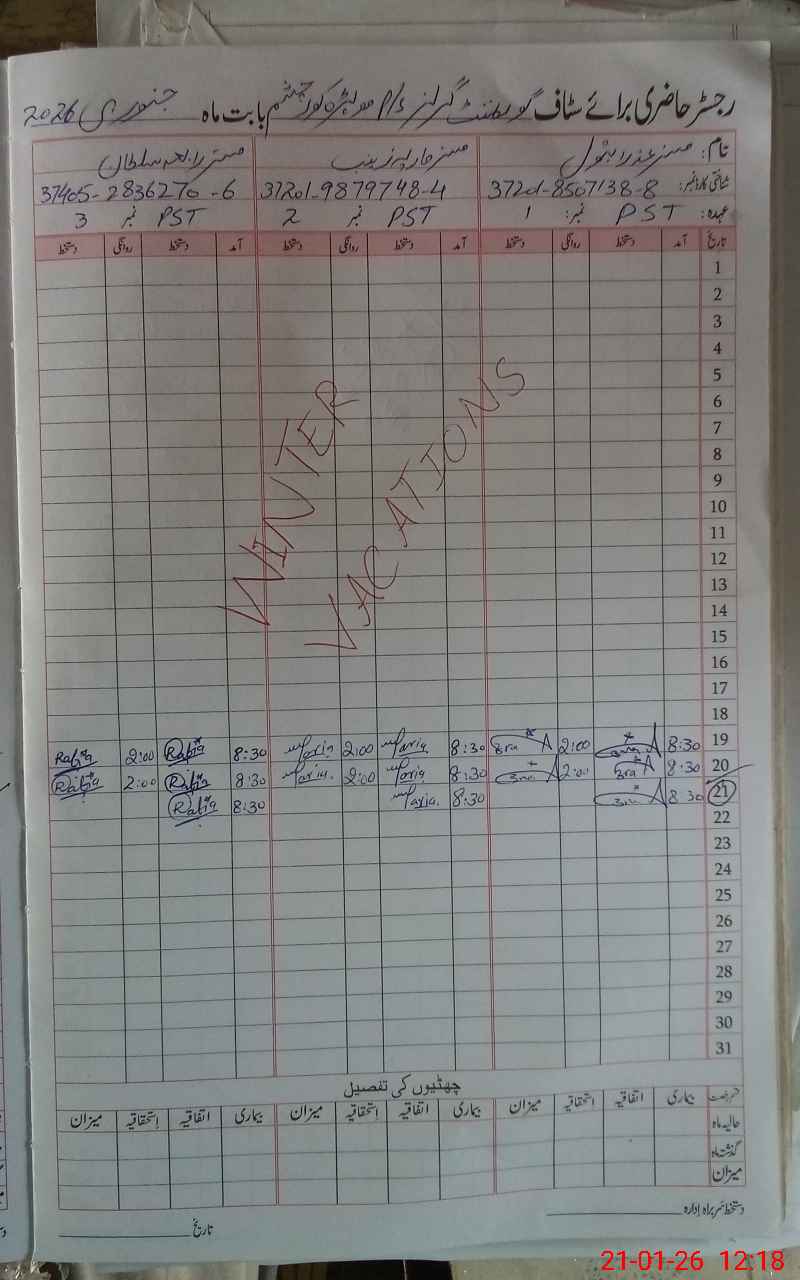 رجسٹر حاضری برائے سٹاف گورنمنٹ گرلز P/S بابت ماہ جنوری 2026
نام: مسز عذرا بتول مسز ماریہ زینب مسز رابعہ سلطان
شناختی کارڈ نمبر: 37201-8507138-8 37201-9879748-4 37405-2836270-6
عہدہ: PST نمبر: 1 PST نمبر 2 PST نمبر 3
تاریخ آمد دستخط روانگی دستخط آمد دستخط روانگی دستخط آمد دستخط روانگی دستخط
1
2
3
4
5
6
7
8
9
10
11
12
13
14
15
16
17
18
WINTER
VACATIONS
19 8:30 2:00 8:30 Maria 2:00 Maria 8:30 Rabia 2:00 Rabia
20 8:30 2:00 8:30 Maria 2:00 Maria 8:30 Rabia 2:00 Rabia
21 8:30 8:30 Maria 8:30 Rabia
22
23
24
25
26
27
28
29
30
31
چھٹیوں کی تفصیل
بیماری اتفاقیہ استحقاقیہ میزان بیماری اتفاقیہ استحقاقیہ میزان بیماری اتفاقیہ استحقاقیہ میزان
حالیہ ماہ
گذشتہ ماہ
میزان
دستخط سربراہ ادارہ
تاریخ
21-01-26 12:18